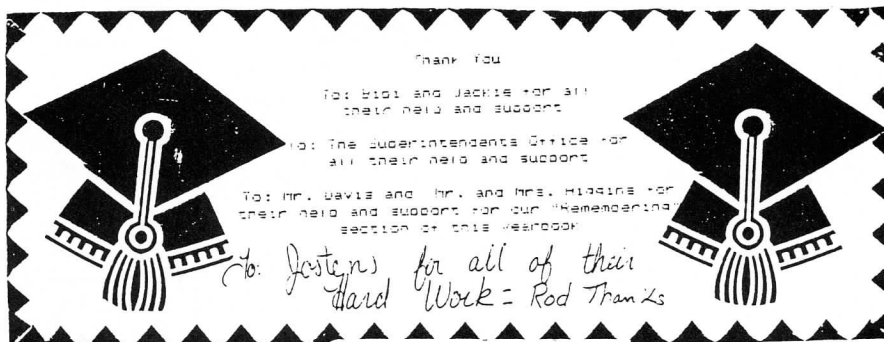 Thank You
To: Bibi and Jackie for all
their help and support
To: The Superintendents Office for
all their help and support
To: Mr. Davis and Mr. and Mrs. Higgins for
their help and support for our "Remembering"
section of this yearbook
To: Jostens for all of their
Hard Work = Rod Thanks